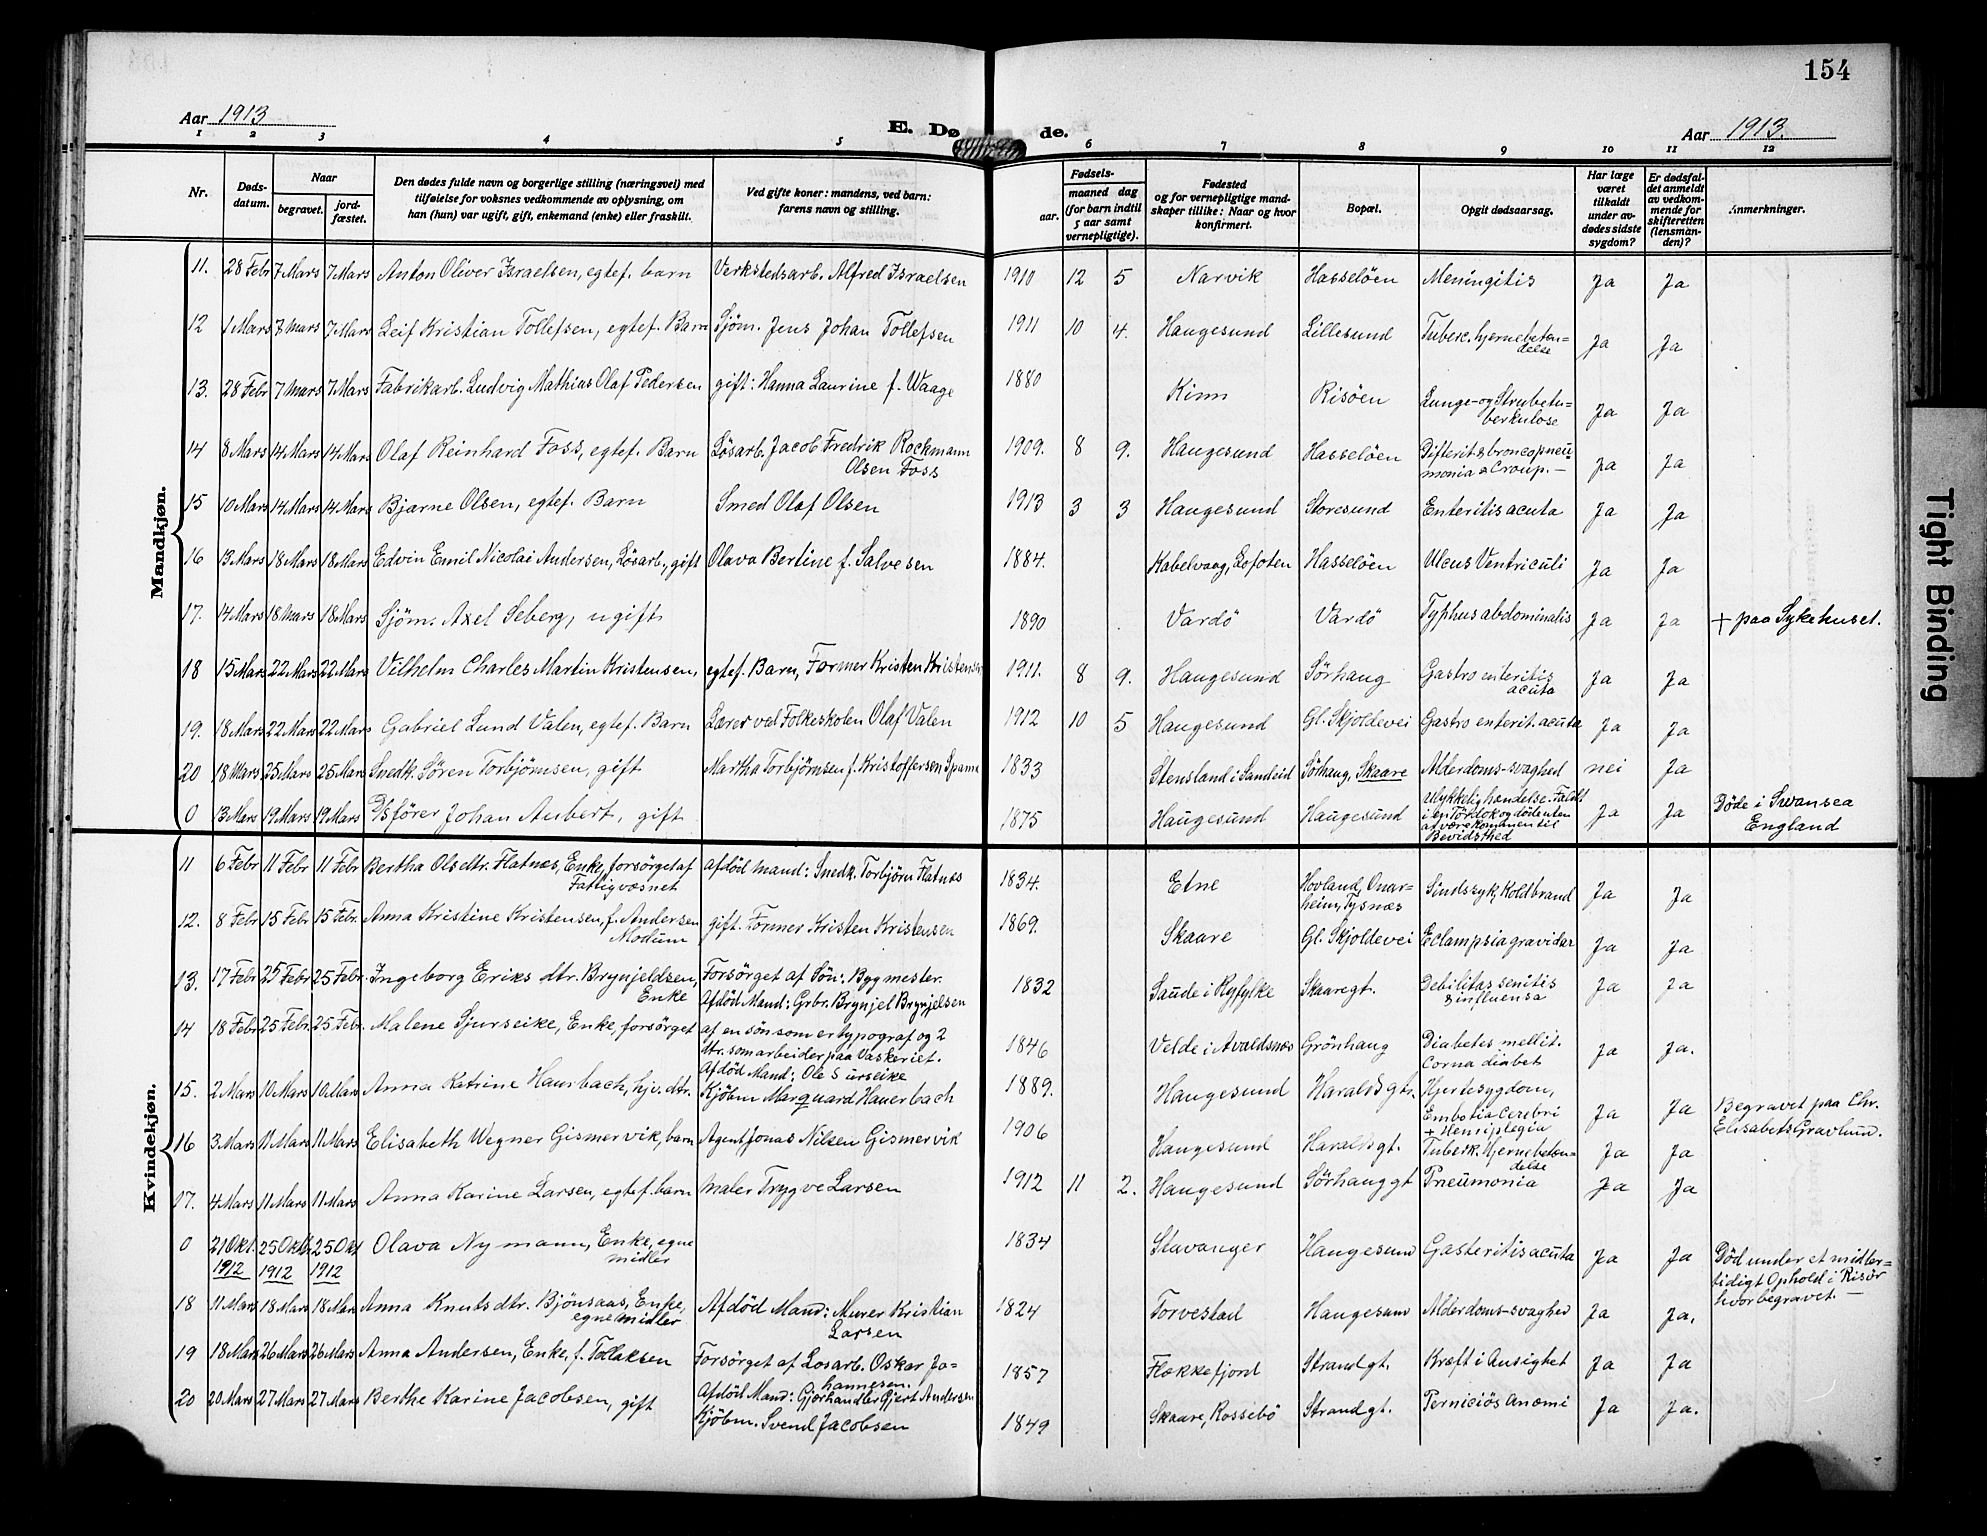 154
Aar 1913 E. Dø de. Aar 1913.
1 2 3 4 5 6 7 8 9 10 11 12
Nr. Døds-datum. Naar begravet. jord-fæstet. Den dødes fulde navn og borgerlige stilling (næringsvei) med tilføielse for voksnes vedkommende av oplysning, om han (hun) var ugift, gift, enkemand (enke) eller fraskilt. Ved gifte koner: mandens, ved barn: farens navn og stilling. Fødsels- aar. maaned dag (for barn indtil 5 aar samt vernepligtige). Fødested og for vernepligtige mand-skaper tillike: Naar og hvor konfirmert. Bopæl. Opgit dødsaarsag. Har læge været tilkaldt under av-dødes sidste sygdom? Er dødsfal-det anmeldt av vedkom-mende for skifteretten (lensman-den)? Anmerkninger.
Mandkjøn.
11. 28 Febr 7 Mars 7 Mars Anton Oliver Israelsen, egtef. barn Verkstedsarb. Alfred Israelsen 1910 12 5 Narvik Hasseløen Meningitis Ja Ja
12 1 Mars 7 Mars 7 Mars Leif Kristian Tollefsen, egtef. Barn Sjøm. Jens Johan Tollefsen 1911 10 4. Haugesund Lillesund Tuberc. hjernebeten=
delse Ja Ja
13. 28 Febr 7 Mars 7 Mars Fabrikarb. Ludvig Mathias Olaf Pedersen gift: Hanna Laurine f. Waage 1880 Kinn Risøen Lunge- og Strubetu=
berkulose Ja Ja
14 8 Mars 14 Mars 14 Mars Olaf Reinhard Foss, egtef. Barn Løsarb. Jacob Fredrik Rockmann
Olsen Foss 1909. 8 9. Haugesund Hasseløen Difterit & broncopneu=
monia & Croup. — Ja Ja
15 10 Mars 14 Mars 14 Mars Bjarne Olsen, egtef. Barn Smed Olaf Olsen 1913 3 3 Haugesund Storesund Enteritis acuta Ja Ja
16 13 Mars 18 Mars 18 Mars Edvin Emil Nicolai Andersen, Løsarb., gift Olava Bertine f. Salvesen 1884. Kabelvaag, Lofoten Hasseløen Ulcus Ventriculi Ja Ja
17. 14 Mars 18 Mars 18 Mars Sjøm. Axel Seberg, ugift 1890 Vardö Vardö Typhus abdominalis Ja Ja + paa Sykehuset.
18 15 Mars 22 Mars 22 Mars Vilhelm Charles Martin Kristensen, egtef. Barn, Former Kristen Kristensen 1911. 8 9. Haugesund Sørhaug Gastro enteritis
acuta Ja Ja
19. 18 Mars 22 Mars 22 Mars Gabriel Lund Valen, egtef. Barn Lærer ved Folkeskolen Olaf Valen 1912 10 5 Haugesund Gl. Skjoldevei Gastro enterit. acuta Ja Ja
20 18 Mars 25 Mars 25 Mars Snedk. Søren Torbjørnsen, gift Martha Torbjørnsen f. Kristoffersen Spanne 1833 Stensland i Sandeid Sørhaug, Skaare Alderdoms-svaghed nei Ja
0 13 Mars 19 Mars 19 Mars D/S fører Johan Aubert, gift 1875 Haugesund Haugesund Ulykkelig hændelse. Faldt
i en Tørdok og døde uten
at være kommen til
Bevidsthed Ja Ja Døde i Swansea
England
Kvindekjøn.
11 6 Febr 11 Febr 11 Febr Bertha Olsdtr. Flatnæs, Enke, forsørget af
Fattigvæsnet afdød Mand: Snedk. Torbjørn Flatnæs 1834. Etne Hovland, Onar=
heim, Tysnæs Sindssyk, Koldbrand Ja Ja
12. 8 Febr 15 Febr 15 Febr. Anna Kristine Kristensen, f. Andersen
Modum gift. Former Kristen Kristensen 1869. Skaare Gl. Skjoldevei Eclampsia gravidar Ja Ja
13. 17 Febr 25 Febr 25 Febr. Ingeborg Eriks dtr. Brynjeldsen,
Enke Forsørget af Søn: Bygmester.
Afdød Mand: Grbr. Brynjel Brynjelsen 1832 Saude i Ryfylke Skaaregt. Debilitas senitis
& influensa Ja Ja
14 18 Febr 25 Febr. 25 Febr. Malene Sjurseike, Enke, forsørget af en søn som er typograf og 2
dtr. som arbeider paa Vaskeriet.
Afdød Mand: Ole Surseike 1846 Velde i Avaldsnæs Grønhaug Diabetes mellit.
Coma diabet Ja Ja.
15. 2 Mars 10 Mars 10 Mars Anna Katrine Hauerbach, hjv. dtr. Kjøbm Marquard Hauerbach 1889. Haugesund Haraldsgt. Hjertesygdom,
Embolia Cerebri
+ Hemiplegia Ja Ja Begravet paa Chr.
Elisabets Gravlund.
16 3 Mars 11 Mars 11 Mars Elisabeth Wegner Gismervik, barn Agent Jonas Nilsen Gismervik 1906 Haugesund Haraldsgt. Tuberk. Hjernebeten=
delse Ja Ja
17. 4 Mars 11 Mars 11 Mars Anna Karine Larsen, egtef. barn Maler Trygve Larsen 1912 11 2. Haugesund Sørhauggt Pneumonia Ja Ja
0 21 Okt. 1912 25 Okt 1912 25 Okt 1912 Olava Nymann, Enke, egne
midler 1834 Stavanger Haugesund Gasteritis acuta Ja Ja Død under et midler=
tidigt Ophold i Risør
hvor begravet. —
18 11 Mars 18 Mars 18 Mar. Anna Knutsdtr. Bjönsaas, Enke,
egne midler Afdød Mand: Murer Kristian
Larsen 1824 Torvestad Haugesund Alderdoms-svaghed Ja Ja.
19 18 Mars 26 Mars 26 Mars Anna Andersen, Enke, f. Tollaksen Forsørget af Løsarb. Oskar Jo=
hannesen.
Afdød Mand: Gjørhandler Gjert Andersen 1857 Flekkefjord Strandgt. Kræft i Ansighet Ja Ja
20 20 Mars 27 Mars 27 Mars Berthe Karine Jacobsen, gift Kjöbm. Svend Jacobsen 1849 Skaare, Rossebö Strandgt. Perniciös Anæmi Ja Ja.
Tight Binding